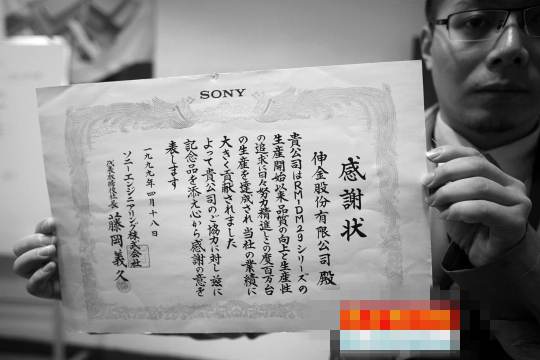 SONY
感謝状
伸金股份有限公司 殿
貴公司はRM-DM29シリーズの
生産開始以来品質の向上と生産性
の追求に日々努力精進しこの度百万台
の生産を達成され当社の業績に
大きく貢献されました
よって貴公司のご協力に対し茲に
記念品を添え心から感謝の意を
表します
一九九九年四月十八日
ソニーエンジニアリング株式会社
代表取締役社長 藤岡義久